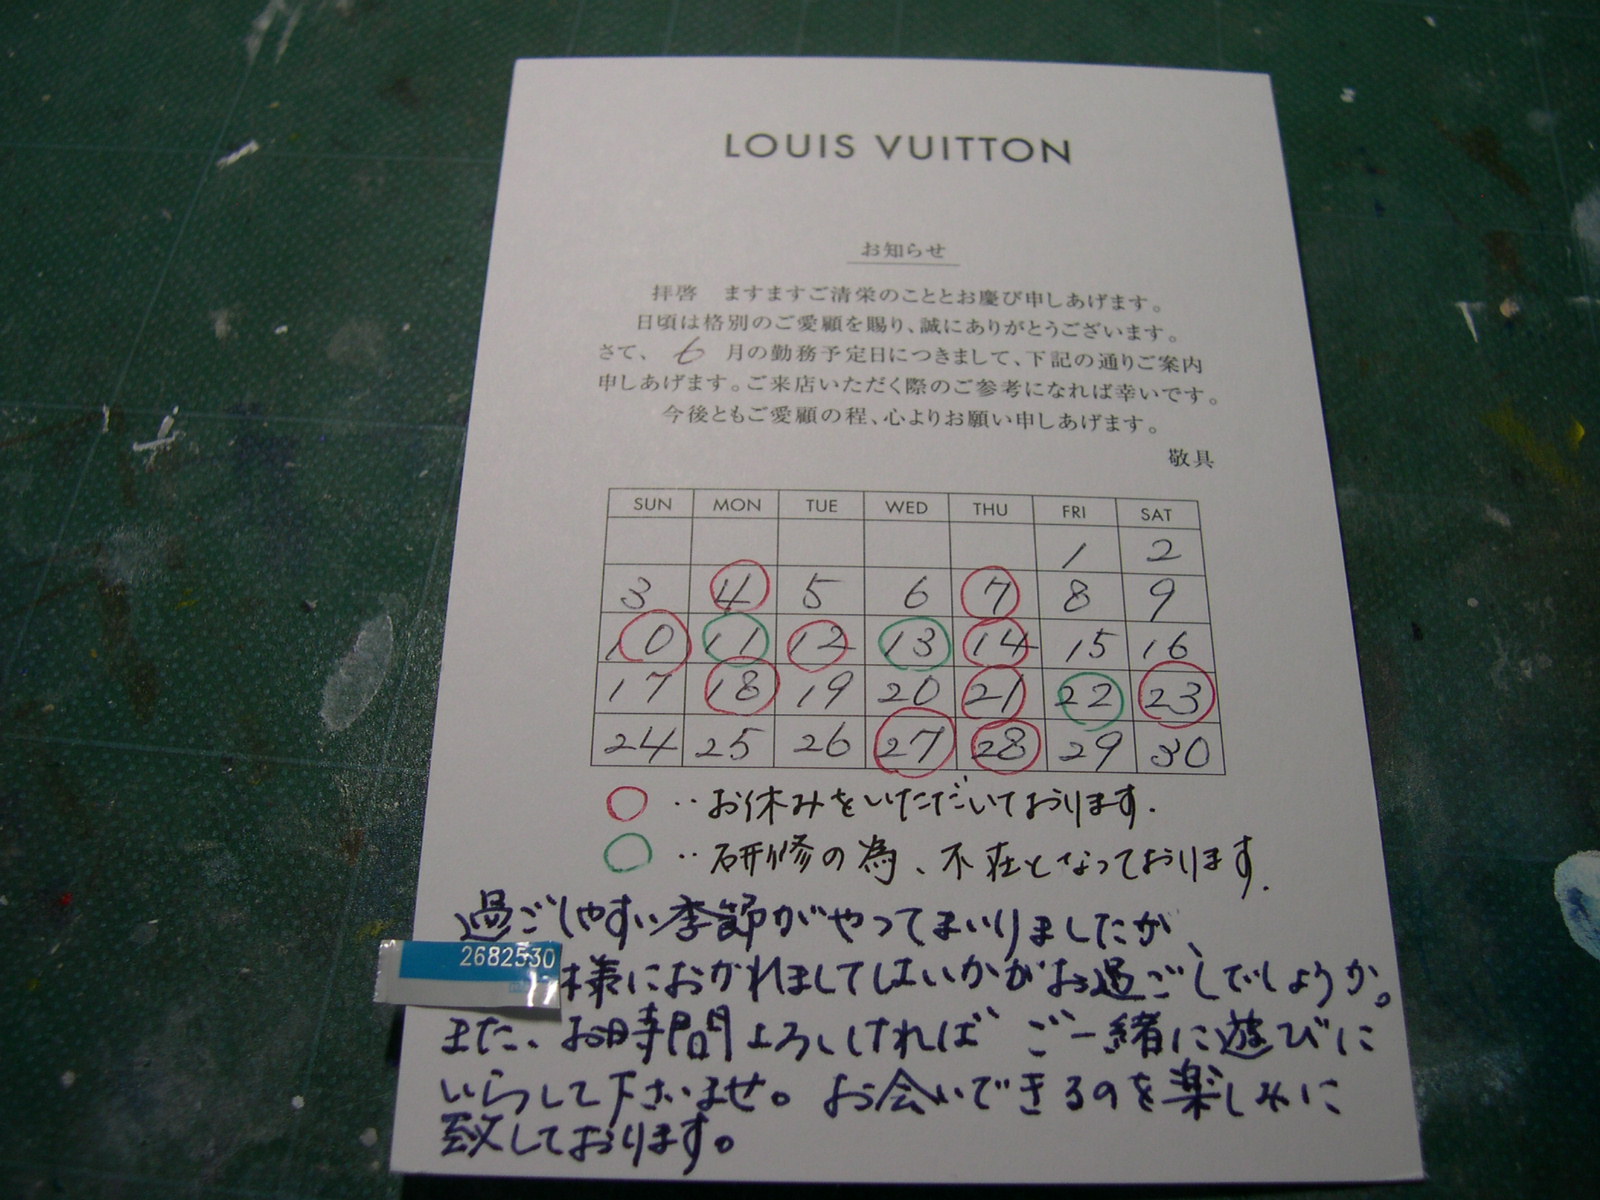 LOUIS VUITTON
お知らせ
拝啓　ますますご清栄のこととお慶び申しあげます。
日頃は格別のご愛顧を賜り、誠にありがとうございます。
さて、 6 月の勤務予定日につきまして、下記の通りご案内
申しあげます。ご来店いただく際のご参考になれば幸いです。
今後ともご愛顧の程、心よりお願い申しあげます。
敬具
SUN MON TUE WED THU FRI SAT
1 2
3 4 5 6 7 8 9
10 11 12 13 14 15 16
17 18 19 20 21 22 23
24 25 26 27 28 29 30
‥お休みをいただいております.
‥研修の為、不在となっております.
過ごしやすい季節がやってまいりましたが、
2682530
様におかれましてはいかがお過ごしでしょうか。
また、お時間よろしければ ご一緒に遊びに
いらして下さいませ。お会いできるのを楽しみに
致しております。